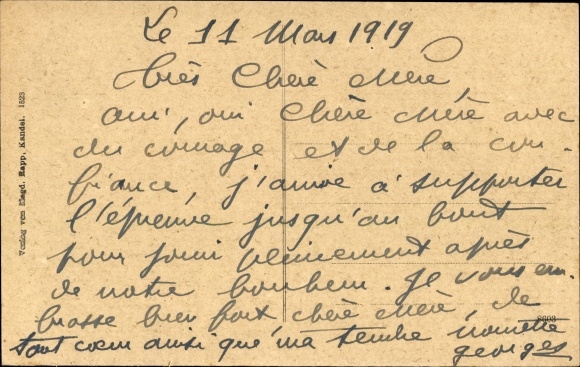 Le 11 Mars 1919
Très Chère Mère,
oui, oui Chère Mère avec
du courage et de la con-
fiance, j'arrive à supporter
l'épreuve jusqu'au bout
pour jouir pleinement après
de notre bonheur. Je vous em-
brasse bien fort chère Mère, de
tout cœur ainsi que ma tendre
georges
Verlag von Magd. Rapp, Kandel. 1523